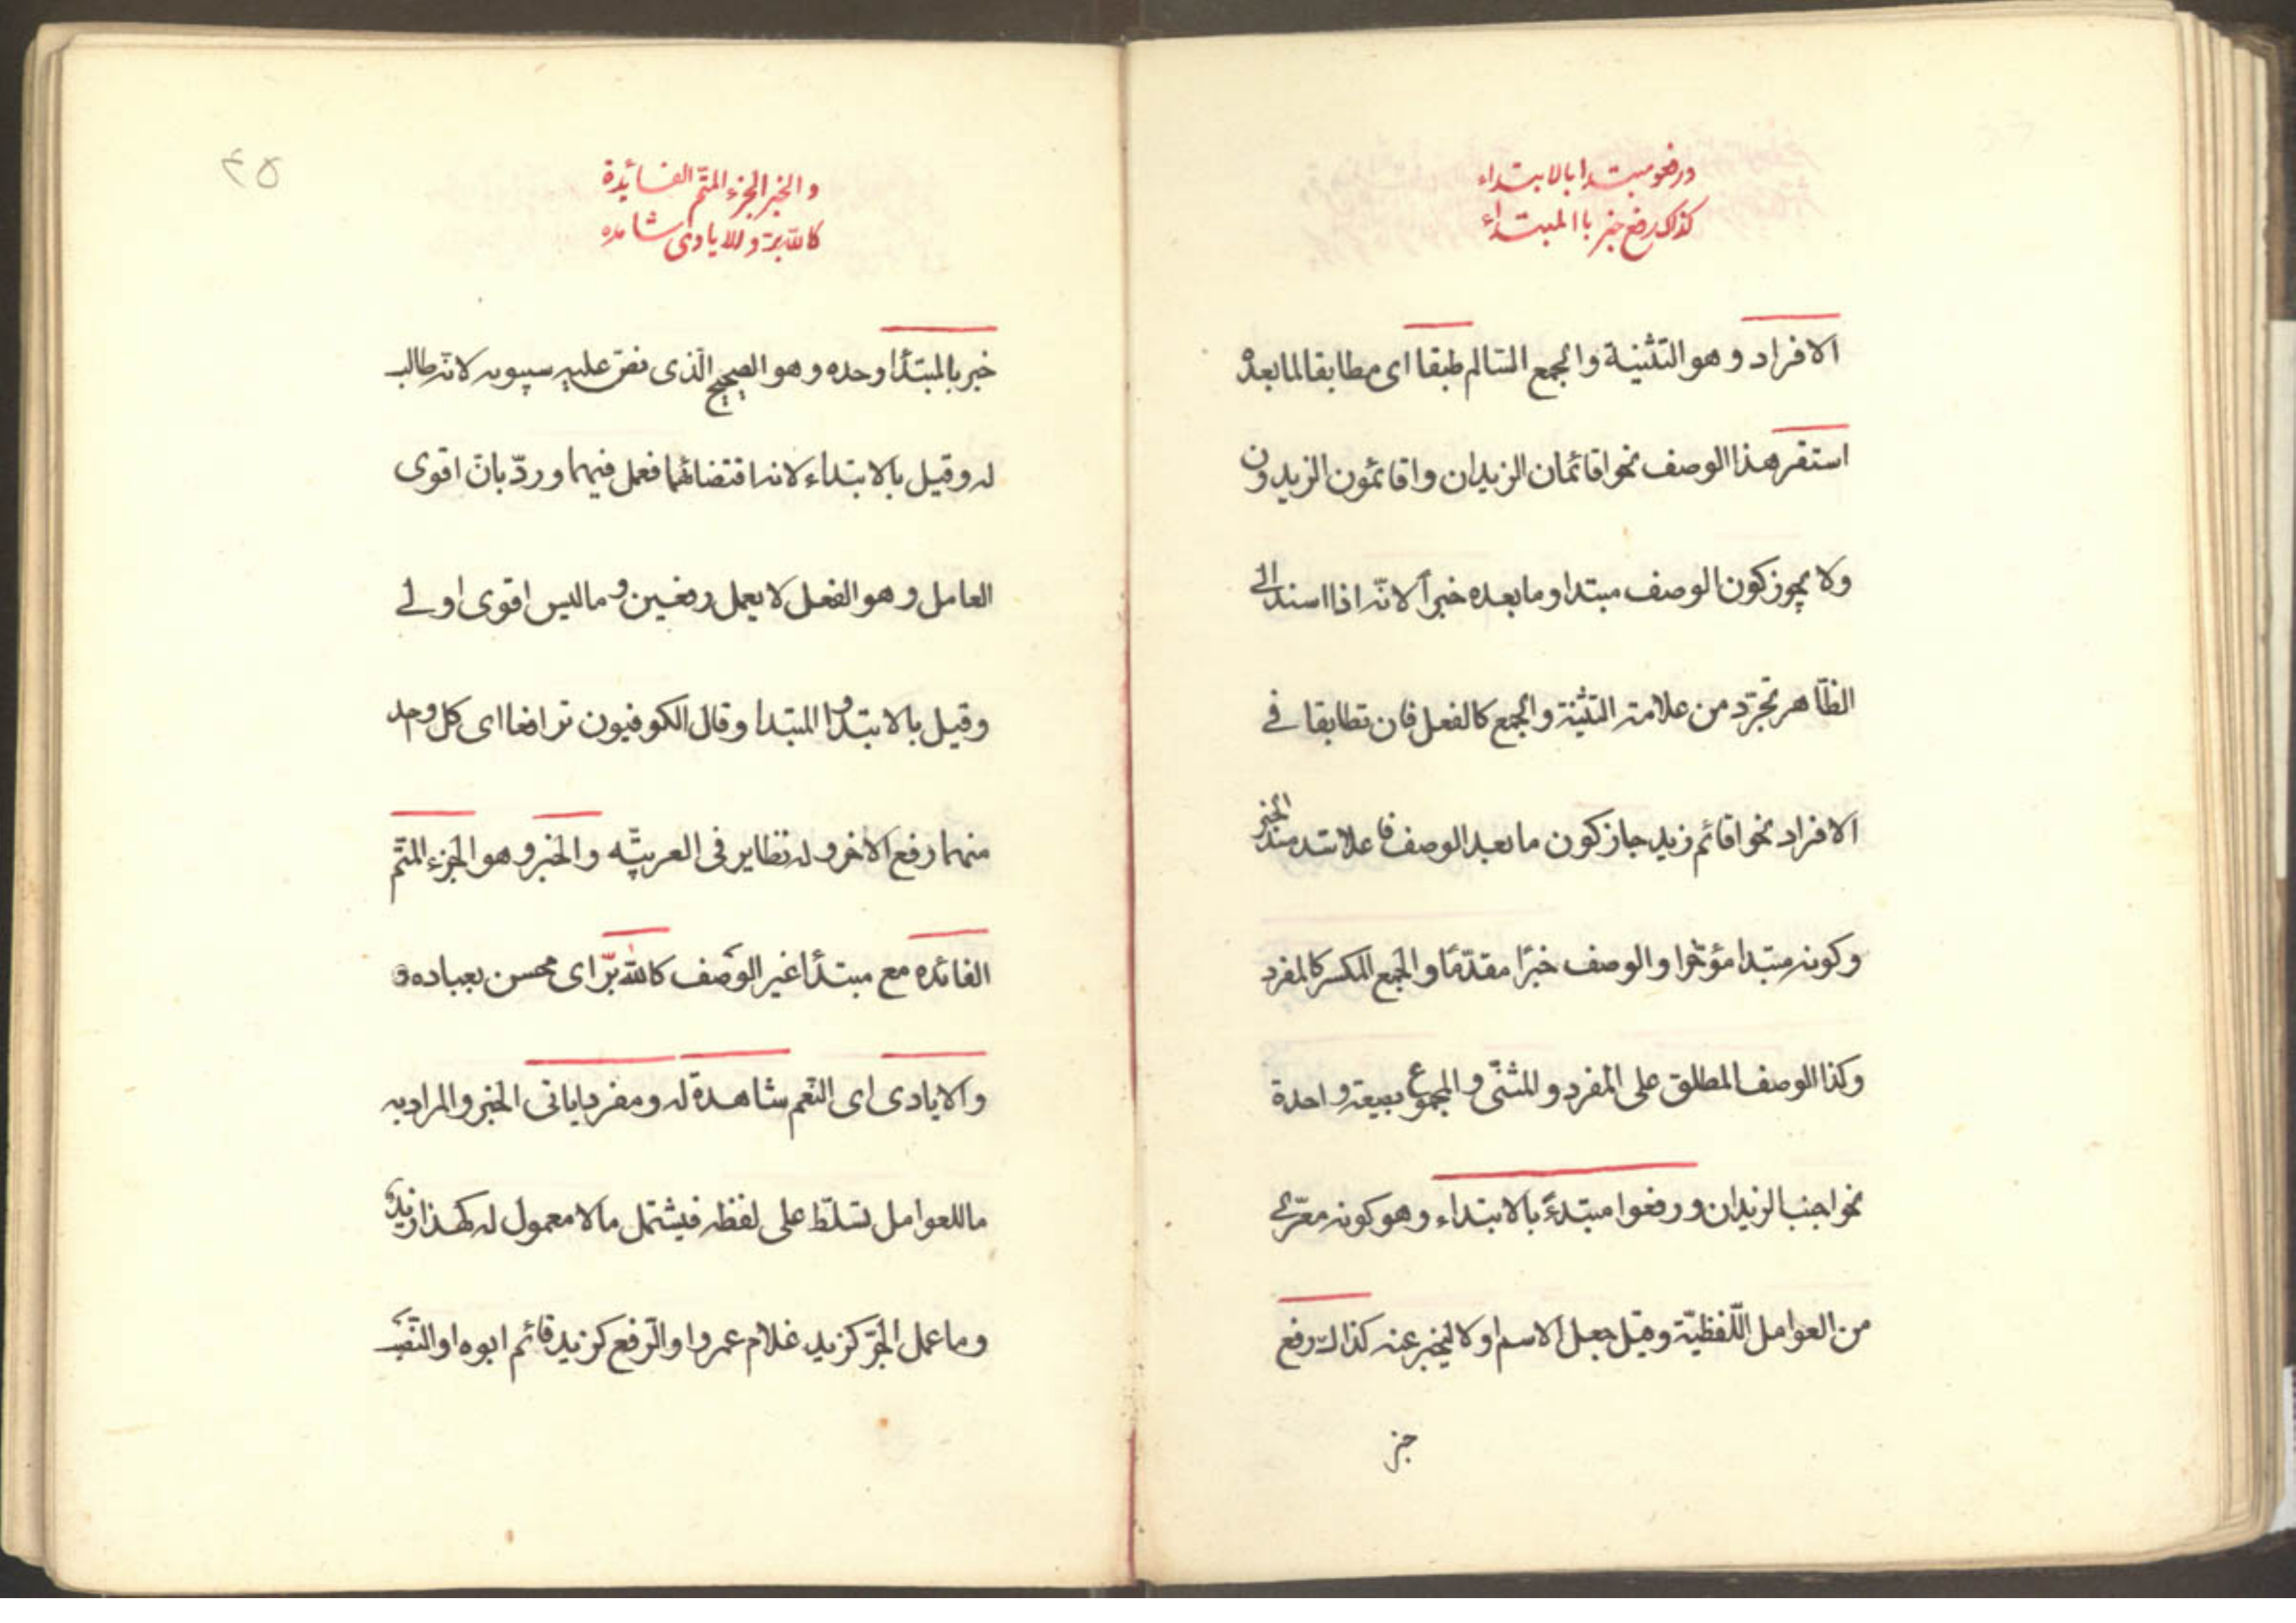 ورفعو مبتدا بالابتداء
كذاك رفع خبر با المبتداء
الافراد وهو التثنية والجمع السالم طبقا اى مطابقا لما بعده
استقر هذا الوصف نحو اقائمان الزيدان واقائمون الزيدون
ولا يجوز كون الوصف مبتدا وما بعده خبرا لانّه اذا اسند الى
الظّاهر تجرّد من علامة التثينة والجمع كالفعل فان تطابقا فى
الافراد نحو اقائم زيد جاز كون ما بعد الوصف فاعلا سد مسد الخبر
وكونه مبتدا مؤخّرا والوصف خبرًا مقدّمًا والجمع المكسر كالمفرد
وكذا الوصف المطلق على المفرد والمثنّى والمجموع بصيغة واحدة
نحو اجنب الزيدان ورفعوا مبتدءً بالابتداء وهو كونه معرّى
من العوامل اللّفظيّة وقيل جعل الاسم اولا ليخبر عنه كذاك رفع
خبر
٤٥
والخبر الجزء المتمّ الفائدة
كاللّه برّ والايادى شاهده
خبر بالمبتدأ وحده وهو الصحيح الّذى نصّ عليه سيبويه لانّه طالب
له وقيل بالابتداء لانه اقتضاهما فعمل فيهما وردّ بانّ اقوى
العامل وهو الفعل لا يعمل رفعين وما ليس اقوى اولى
وقيل بالابتدا والمبتدا وقال الكوفيون ترافعا اى كل وحد
منهما رفع الاخر وله نظاير فى العربيّه والخبر وهو الجزء المتمّ
الفائده مع مبتدأ غير الوصف كاللّه برّ اى محسن بعباده و
والايادى اى النّعم شاهدة له ومفردا ياتى الخبر والمراد به
ما للعوامل تسلّط على لفظه فيشتمل ما لا معمول له كهذا زيد
وما عمل الجرّ كزيد غلام عمرو او الرّفع كزيد قائم ابوه او النّصب